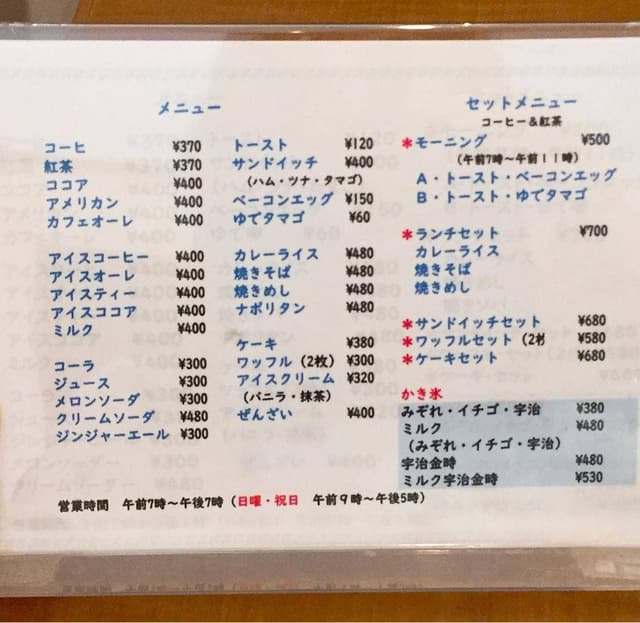 メニュー
コーヒ ¥370
紅茶 ¥370
ココア ¥400
アメリカン ¥400
カフェオーレ ¥400
アイスコーヒー ¥400
アイスオーレ ¥400
アイスティー ¥400
アイスココア ¥400
ミルク ¥400
コーラ ¥300
ジュース ¥300
メロンソーダ ¥300
クリームソーダ ¥480
ジンジャーエール ¥300
トースト ¥120
サンドイッチ ¥400
(ハム・ツナ・タマゴ)
ベーコンエッグ ¥150
ゆでタマゴ ¥60
カレーライス ¥480
焼きそば ¥480
焼きめし ¥480
ナポリタン ¥480
ケーキ ¥380
ワッフル(2枚) ¥300
アイスクリーム ¥320
(バニラ・抹茶)
ぜんざい ¥400
セットメニュー
コーヒー&紅茶
*モーニング ¥500
(午前7時~午前11時)
A・トースト・ベーコンエッグ
B・トースト・ゆでタマゴ
*ランチセット ¥700
カレーライス
焼きそば
焼きめし
*サンドイッチセット ¥680
*ワッフルセット(2 ¥580
*ケーキセット ¥680
かき氷
みぞれ・イチゴ・宇治 ¥380
ミルク ¥480
(みぞれ・イチゴ・宇治)
宇治金時 ¥480
ミルク宇治金時 ¥530
営業時間 午前7時~午後7時(日曜・祝日 午前9時~午後5時)